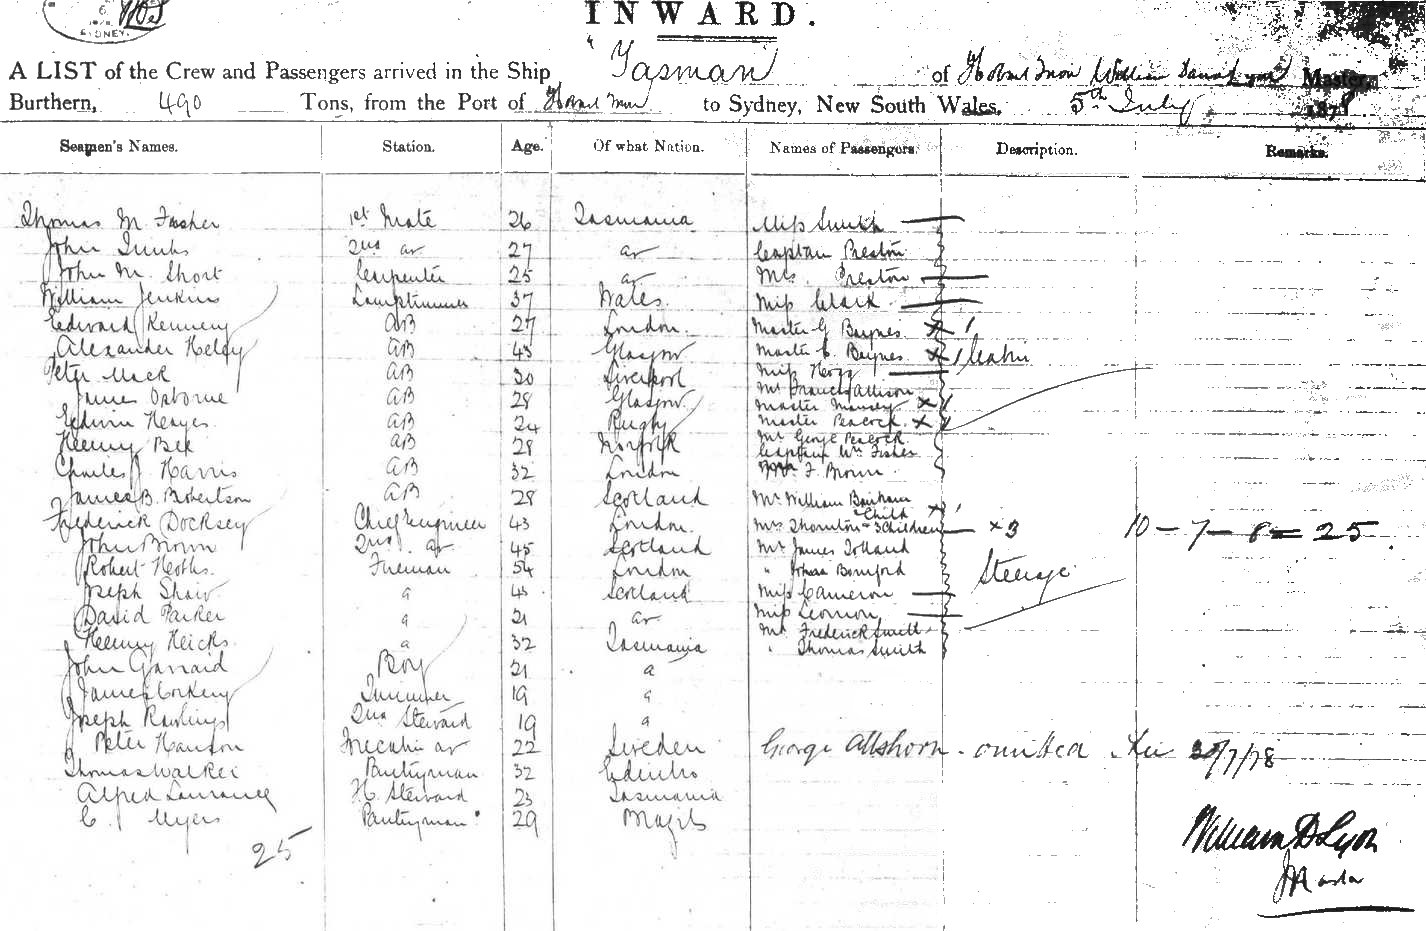 6
SYDNEY.
INWARD.
A LIST of the Crew and Passengers arrived in the Ship "Tasman" of Hobart Town William Master,
Burthern, 490 Tons, from the Port of Hobart Town to Sydney, New South Wales, 5th July 1878
Seamen's Names. Station. Age. Of what Nation. Names of Passengers. Description. Remarks.
Thomas M. Fisher 1st Mate 26 Tasmania Miss Smith
John 2nd do 27 do Captain Preston
John M. Short Carpenter 25 do Mrs. Preston
William Jenkins Lamptrimmer 37 Wales. Miss Clark
Edward Kennery AB 27 London. Master G Baynes x 1
Alexander AB 43 Glasgow Master C. Baynes. x 1 Cabin
Peter Mack AB 30 Liverpool Miss
James Osborne AB 28 Glasgow Mr Francis Allison
Master x 1
Edwin Hayes AB 24 Rugby Master Peacock x 1
Henry Bex AB 28 Norfolk Mr George Peacock
Captain Wm Fisher
Charles J Harris AB 32 London F Brown.
James B. Robertson AB 28 Scotland Mr William Bonham
& Child x 1
Frederick Docksey Chief Engineer 43 London. Mrs Thornton & 3 Children x 3 10 - 7 - 8 = 25.
John Brown 2nd do 45 Scotland Mr James Tolland
Robert Fireman 54 London " Bomford Steerage
Joseph Shaw " 45 Scotland Miss Cameron
David Parker " 21 do Miss
Henry Hicks " 32 Tasmania Mr Frederick Smith
" Thomas Smith
John Garraid Boy 21 "
James Corkery Trimmer 19 "
Joseph Rawlings 2nd Steward 19 "
Peter Hanson Forecabin do 22 Sweden George Allshorn - omitted 30/7/78
Thomas Walker Pantryman 32 Edinbro
Alfred Laurance H. Steward 23 Tasmania
C. Myers Pantryman 29 Brazils
25
William D Lyon
Master